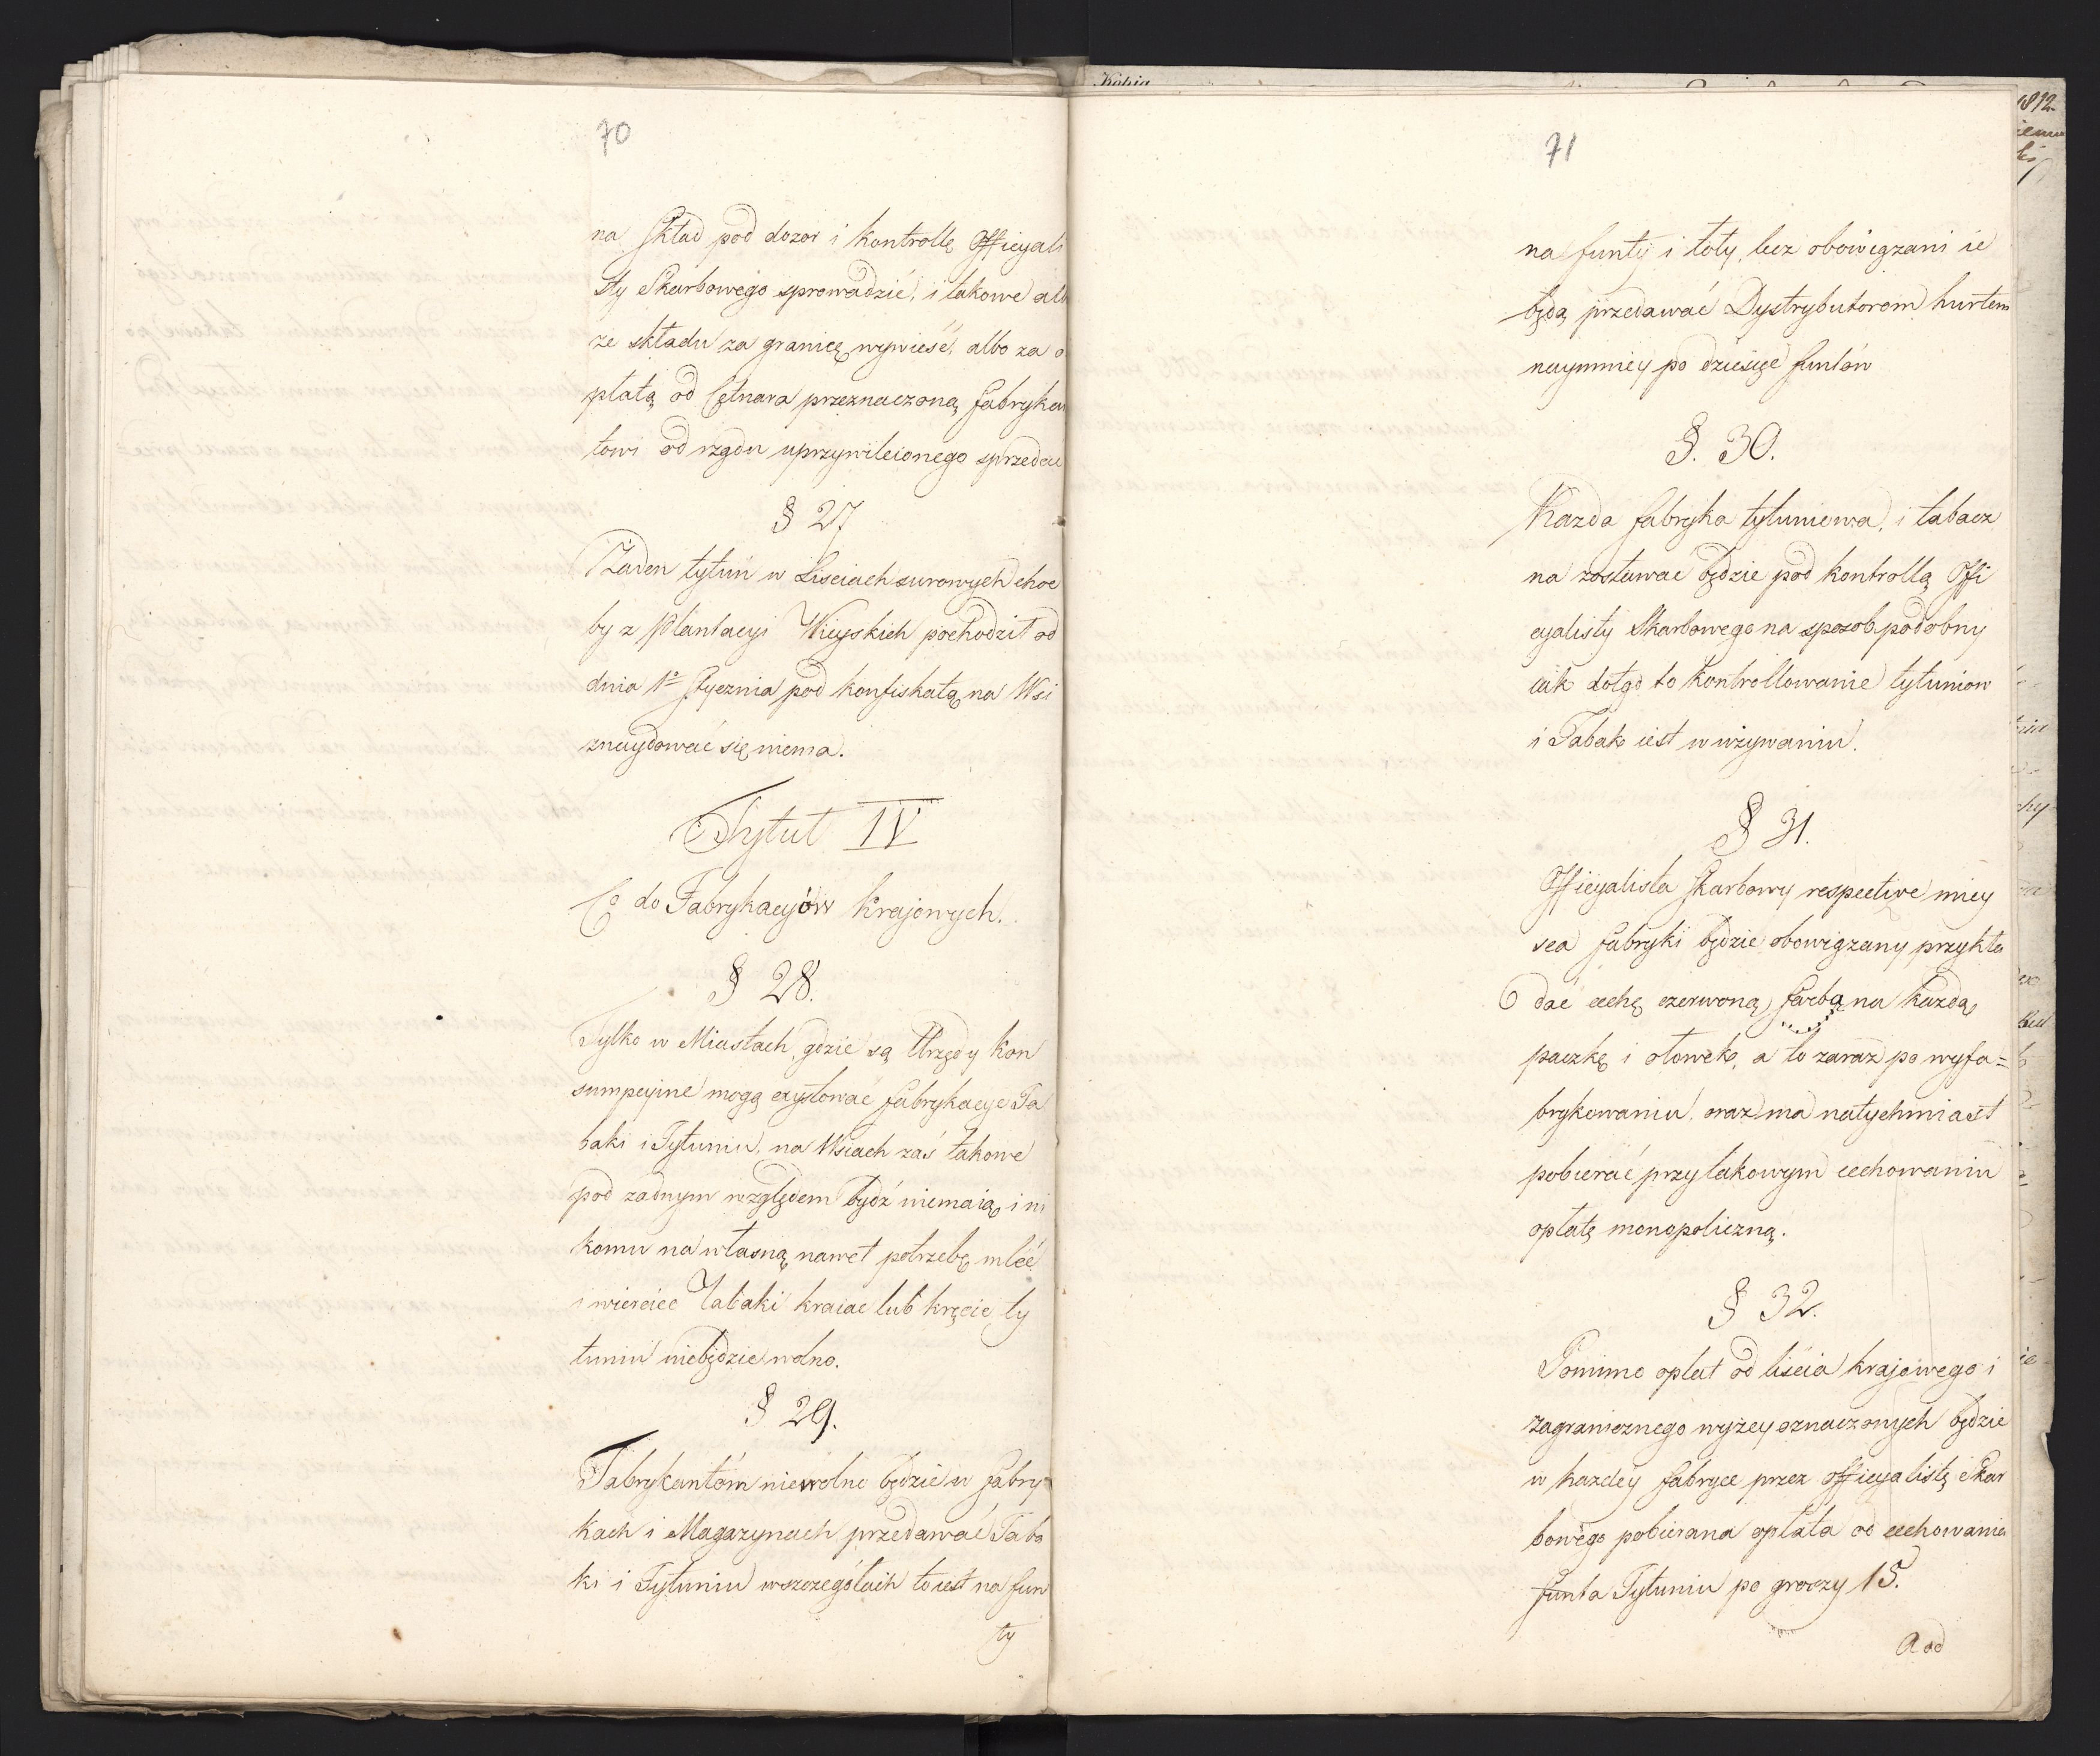 70
na Skład pod dozor i kontrollę Officyali
sty Skarbowego sprowadzić, i takowe alb
ze składu za granicę wywieść, albo za o
płatą od Cętnara przeznaczoną fabrykan
towi od rządu uprzywileionego sprzedać
§ 27
Żaden tytuń w Lisciach surowych choc
by z plantacyi Wieyskich pochodził od
dnia 1º Stycznia pod konfiskatą na Wsi
znaydować się niema.
Tytuł IV
Co do Fabrykacyów Krajowych.
§ 28.
Tylko w Miastach, gdzie są Urzędy Kon
sumpcyine mogą exystować fabrykacye Ta
baki i Tytuniu, na Wsiach zaś takowe
pod zadnym względem bydź niemaią, i ni
komu na własną nawet potrzebę mleć
i wiercieć Tabaki kraiac lub kręcic ty
tuniu niebędzie wolno.
§ 29.
Fabrykantóm niewolno będzie w fabry
kach i Magazynach przedawać Taba
ki i Tytuniu wszczegółach to iest na fun
ty
Kopia
71
na funty i łoty, lecz obowiązani ie
będą przedawać Dystrybutorom hurtem
naymniey po dziesięć funtów
§. 30.
Kazda fabryka tytuniowa, i tabacz
na zostawac będzie pod kontrollą Offi
cyalisty Skarbowego na sposob podobny
iaik dotąd to kontrollowanie tytuniow
i Tabak iest w używaniu.
§ 31.
Officyalista Skarbowy respective miey
sca fabryki będzie obowiązany przykła
dać cechę czerwoną farbą na kazdą
paczkę i ołowek, a to zaraz po wyfa=
brykowaniu, oraz ma natychmiast
pobierać przy takowym cechowaniu
opłatę monopoliczną.
§ 32.
Pomimo opłat od liścia krajowego i
zagranicznego wyżey oznaczonych będzie
w kazdey fabryce przez officyalistę Skar
bowego pobierana opłata od cechowania
funta Tytuniu po groszy 15.
A od
1812